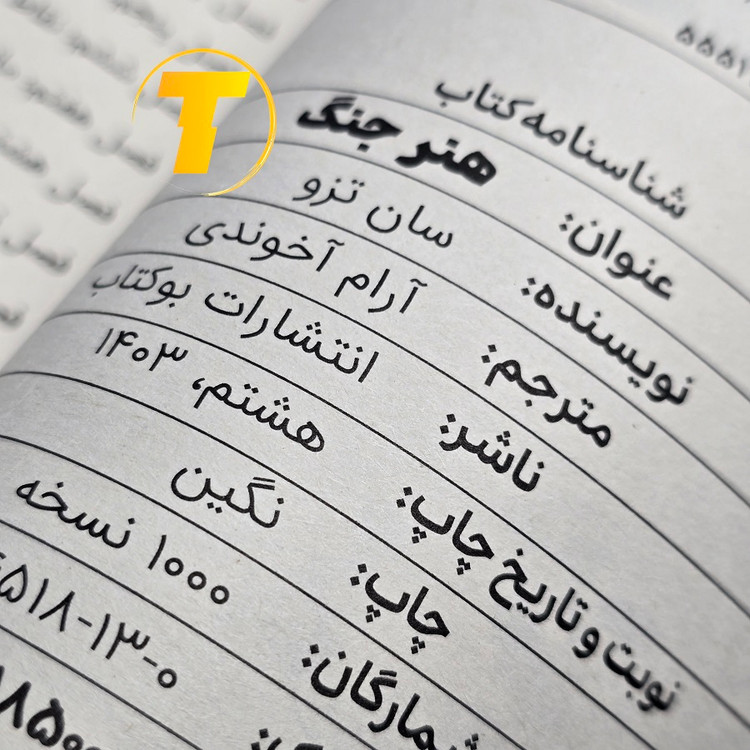 ۵۵۵۱
شناسنامه کتاب
عنوان: هنر جنگ
نویسنده: سان تزو
مترجم: آرام آخوندی
ناشر: انتشارات بوکتاب
نوبت و تاریخ چاپ: هشتم، ۱۴۰۳
چاپ: نگین
شمارگان: ۱۰۰۰ نسخه
۵۱۸-۱۳-۰
۸۵۰۰
T